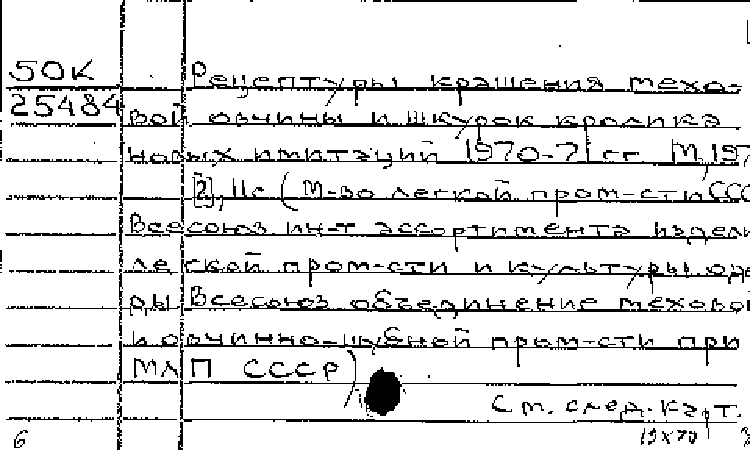 50К
25484
Рецептуры крашения мехо-
вой овчины и шкурок кролика
новых имитаций 1970-71 гг. М, 197
[2], 11с (М-во легкой пром-сти ССС
Всесоюз ин-т ассортимента издели
легкой пром-сти и культуры оде
ды Всесоюз объединение мехово
и овчинно-шубной пром-сти при
МЛП СССР)
См. след. карт.
6 19х70